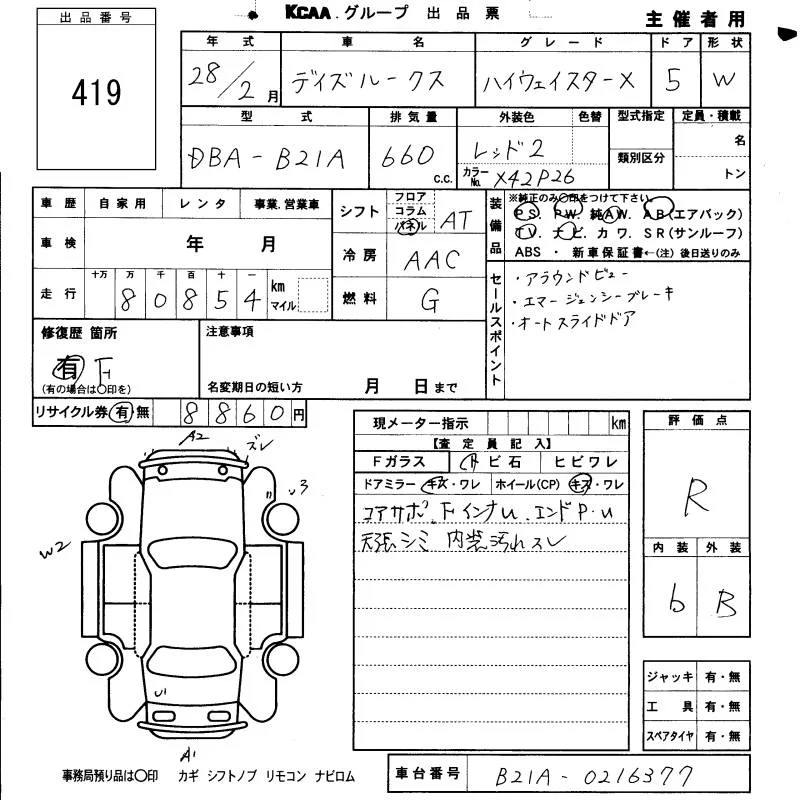 KCAA グループ 出品票
主催者用
出品番号
419
年式 車名 グレード ドア 形状
28/2月 デイズルークス ハイウェイスターX 5 W
型式 排気量 外装色 色替 型式指定 定員・積載
DBA-B21A 660 c.c. レッド2 名
カラーNo. X42P26 類別区分 トン
車歴 自家用 レンタ 事業.営業車
シフト フロア コラム パネル AT
装備品 ※純正のみ○印をつけて下さい。
PS PW. 純AW. AB(エアバック)
TV. ナビ. カワ. SR(サンルーフ)
ABS ・ 新車保証書←(注) 後日送りのみ
車検 年 月
冷房 AAC
走行 十万 万 千 百 十 一
80854 km マイル
燃料 G
セールスポイント
・アラウンドビュー
・エマージェンシーブレーキ
・オートスライドドア
修復歴 箇所
有 F
(有の場合は○印を)
注意事項
名変期日の短い方 月 日まで
リサイクル券 有 無 8860円
現メーター指示 km
【査定員記入】
Fガラス ビ石 ヒビワレ
ドアミラー キズ・ワレ ホイール(CP) キズ・ワレ
コアサポ. FインナU. エンドP・U
天張シミ 内装汚れスレ
評価点
R
内装 外装
b B
ジャッキ 有・無
工具 有・無
スペアタイヤ 有・無
A2 ズレ
U3
W2
U1
A1
事務局預り品は○印 カギ シフトノブ リモコン ナビロム
車台番号 B21A-0216377